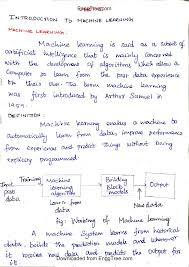 EnggTree.com
INTRODUCTION TO MACHINE LEARNING
MACHINE LEARNING:
Machine learning is said as a subset of
artificial intelligence that is mainly concerned
with the development of algorithms which allow a
computer to learn from the past data experience
on their own. The term machine learning
was first introduced by Arthur Samuel in
1959.
DEFINITION:
Machine learning enables a machine to
automatically learn from data, improve performance
from experience and predict things without being
explicitly programmed.
Input past data
Training
Machine learning algorithm
Building logical models
Output
Learn from data
New data
fig: Working of Machine Learning
A machine System learns from historical
data, builds the prediction models and whenever
it receives new data predicts the output for
it.
Downloaded from EnggTree.com